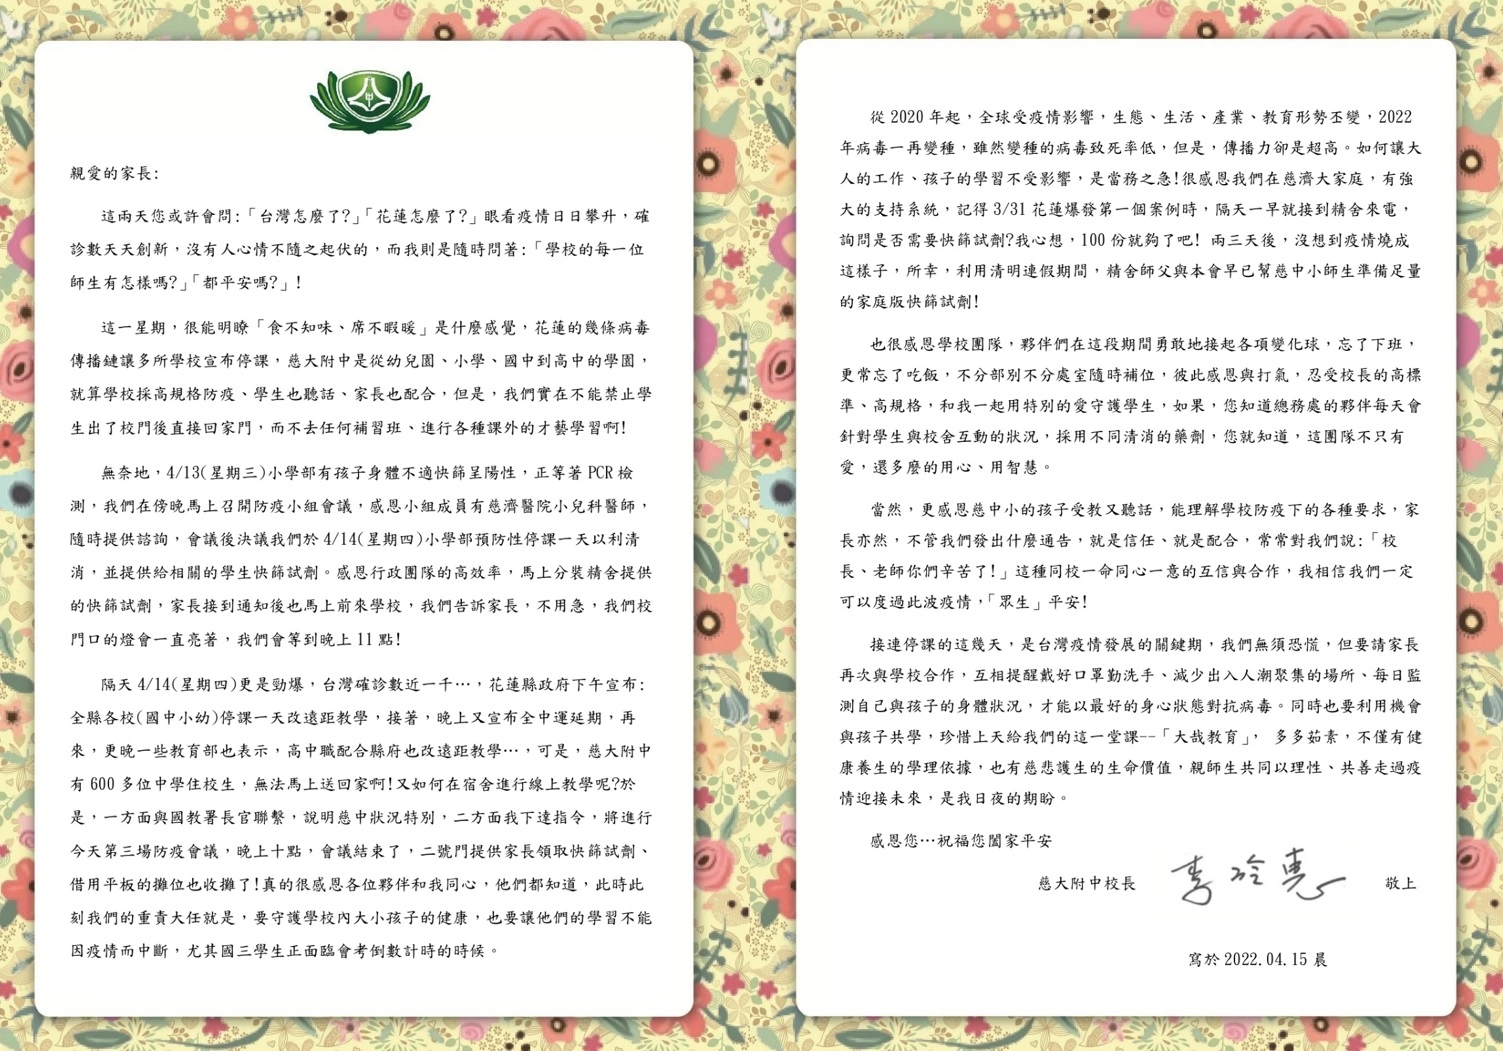 親愛的家長:
這兩天您或許會問:「台灣怎麼了?」「花蓮怎麼了?」眼看疫情日日攀升，確
診數天天創新，沒有人心情不隨之起伏的，而我則是隨時問著:「學校的每一位
師生有怎樣嗎?」「都平安嗎?」!
這一星期，很能明瞭「食不知味、席不暇暖」是什麼感覺，花蓮的幾條病毒
傳播鏈讓多所學校宣布停課，慈大附中是從幼兒園、小學、國中到高中的學園，
就算學校採高規格防疫、學生也聽話、家長也配合，但是，我們實在不能禁止學
生出了校門後直接回家門，而不去任何補習班、進行各種課外的才藝學習啊!
無奈地，4/13(星期三)小學部有孩子身體不適快篩呈陽性，正等著 PCR 檢
測，我們在傍晚馬上召開防疫小組會議，感恩小組成員有慈濟醫院小兒科醫師，
隨時提供諮詢，會議後決議我們於 4/14(星期四)小學部預防性停課一天以利清
消，並提供給相關的學生快篩試劑。感恩行政團隊的高效率，馬上分裝精舍提供
的快篩試劑，家長接到通知後也馬上前來學校，我們告訴家長，不用急，我們校
門口的燈會一直亮著，我們會等到晚上 11 點!
隔天 4/14(星期四)更是勁爆，台灣確診數近一千…，花蓮縣政府下午宣布:
全縣各校(國中小幼)停課一天改遠距教學，接著，晚上又宣布全中運延期，再
來，更晚一些教育部也表示，高中職配合縣府也改遠距教學…，可是，慈大附中
有 600 多位中學住校生，無法馬上送回家啊!又如何在宿舍進行線上教學呢?於
是，一方面與國教署長官聯繫，說明慈中狀況特別，二方面我下達指令，將進行
今天第三場防疫會議，晚上十點，會議結束了，二號門提供家長領取快篩試劑、
借用平板的攤位也收攤了!真的很感恩各位夥伴和我同心，他們都知道，此時此
刻我們的重責大任就是，要守護學校內大小孩子的健康，也要讓他們的學習不能
因疫情而中斷，尤其國三學生正面臨會考倒數計時的時候。
從 2020 年起，全球受疫情影響，生態、生活、產業、教育形勢丕變，2022
年病毒一再變種，雖然變種的病毒致死率低，但是，傳播力卻是超高。如何讓大
人的工作、孩子的學習不受影響，是當務之急!很感恩我們在慈濟大家庭，有強
大的支持系統，記得 3/31 花蓮爆發第一個案例時，隔天一早就接到精舍來電，
詢問是否需要快篩試劑?我心想，100 份就夠了吧! 兩三天後，沒想到疫情燒成
這樣子，所幸，利用清明連假期間，精舍師父與本會早已幫慈中小師生準備足量
的家庭版快篩試劑!
也很感恩學校團隊，夥伴們在這段期間勇敢地接起各項變化球，忘了下班，
更常忘了吃飯，不分部別不分處室隨時補位，彼此感恩與打氣，忍受校長的高標
準、高規格，和我一起用特別的愛守護學生，如果，您知道總務處的夥伴每天會
針對學生與校舍互動的狀況，採用不同清消的藥劑，您就知道，這團隊不只有
愛，還多麼的用心、用智慧。
當然，更感恩慈中小的孩子受教又聽話，能理解學校防疫下的各種要求，家
長亦然，不管我們發出什麼通告，就是信任、就是配合，常常對我們說:「校
長、老師你們辛苦了!」這種同校一命同心一意的互信與合作，我相信我們一定
可以度過此波疫情，「眾生」平安!
接連停課的這幾天，是台灣疫情發展的關鍵期，我們無須恐慌，但要請家長
再次與學校合作，互相提醒戴好口罩勤洗手、減少出入人潮聚集的場所、每日監
測自己與孩子的身體狀況，才能以最好的身心狀態對抗病毒。同時也要利用機會
與孩子共學，珍惜上天給我們的這一堂課--「大哉教育」， 多多茹素，不僅有健
康養生的學理依據，也有慈悲護生的生命價值，親師生共同以理性、共善走過疫
情迎接未來，是我日夜的期盼。
感恩您…祝福您闔家平安
慈大附中校長 李玲惠 敬上
寫於 2022.04.15 晨